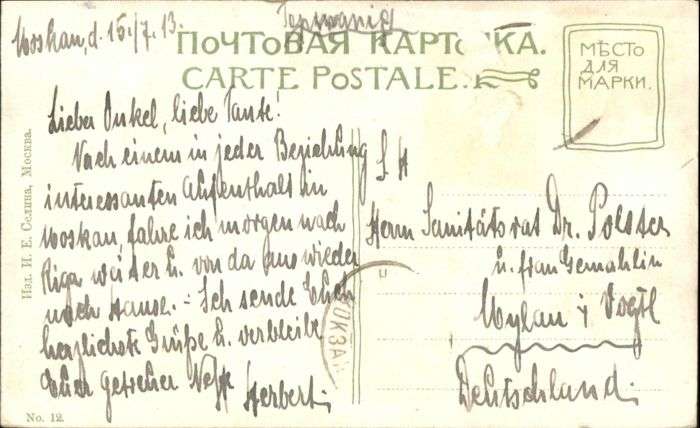 Германия
Moskau, d. 15./7. 13.
ПОЧТОВАЯ КАРТОЧКА.
CARTE POSTALE.
МѢСТО
ДЛЯ
МАРКИ.
Lieber Onkel, liebe Tante!
Nach einem in jeder Beziehung
interessanten Aufenthalt in
Moskau, fahre ich morgen nach
Riga weiter u. von da aus wieder
nach Hause. - Ich sende Euch
herzlichste Grüße u. verbleibe
Euer getreuer Neffe
Herbert.
S. H
Herrn Sanitätsrat Dr. Polster
u. Frau Gemahlin
Mylau i Vogtl
Deutschland.
ВОКЗА
Изд. И. Е. Селина, Москва.
No. 12.